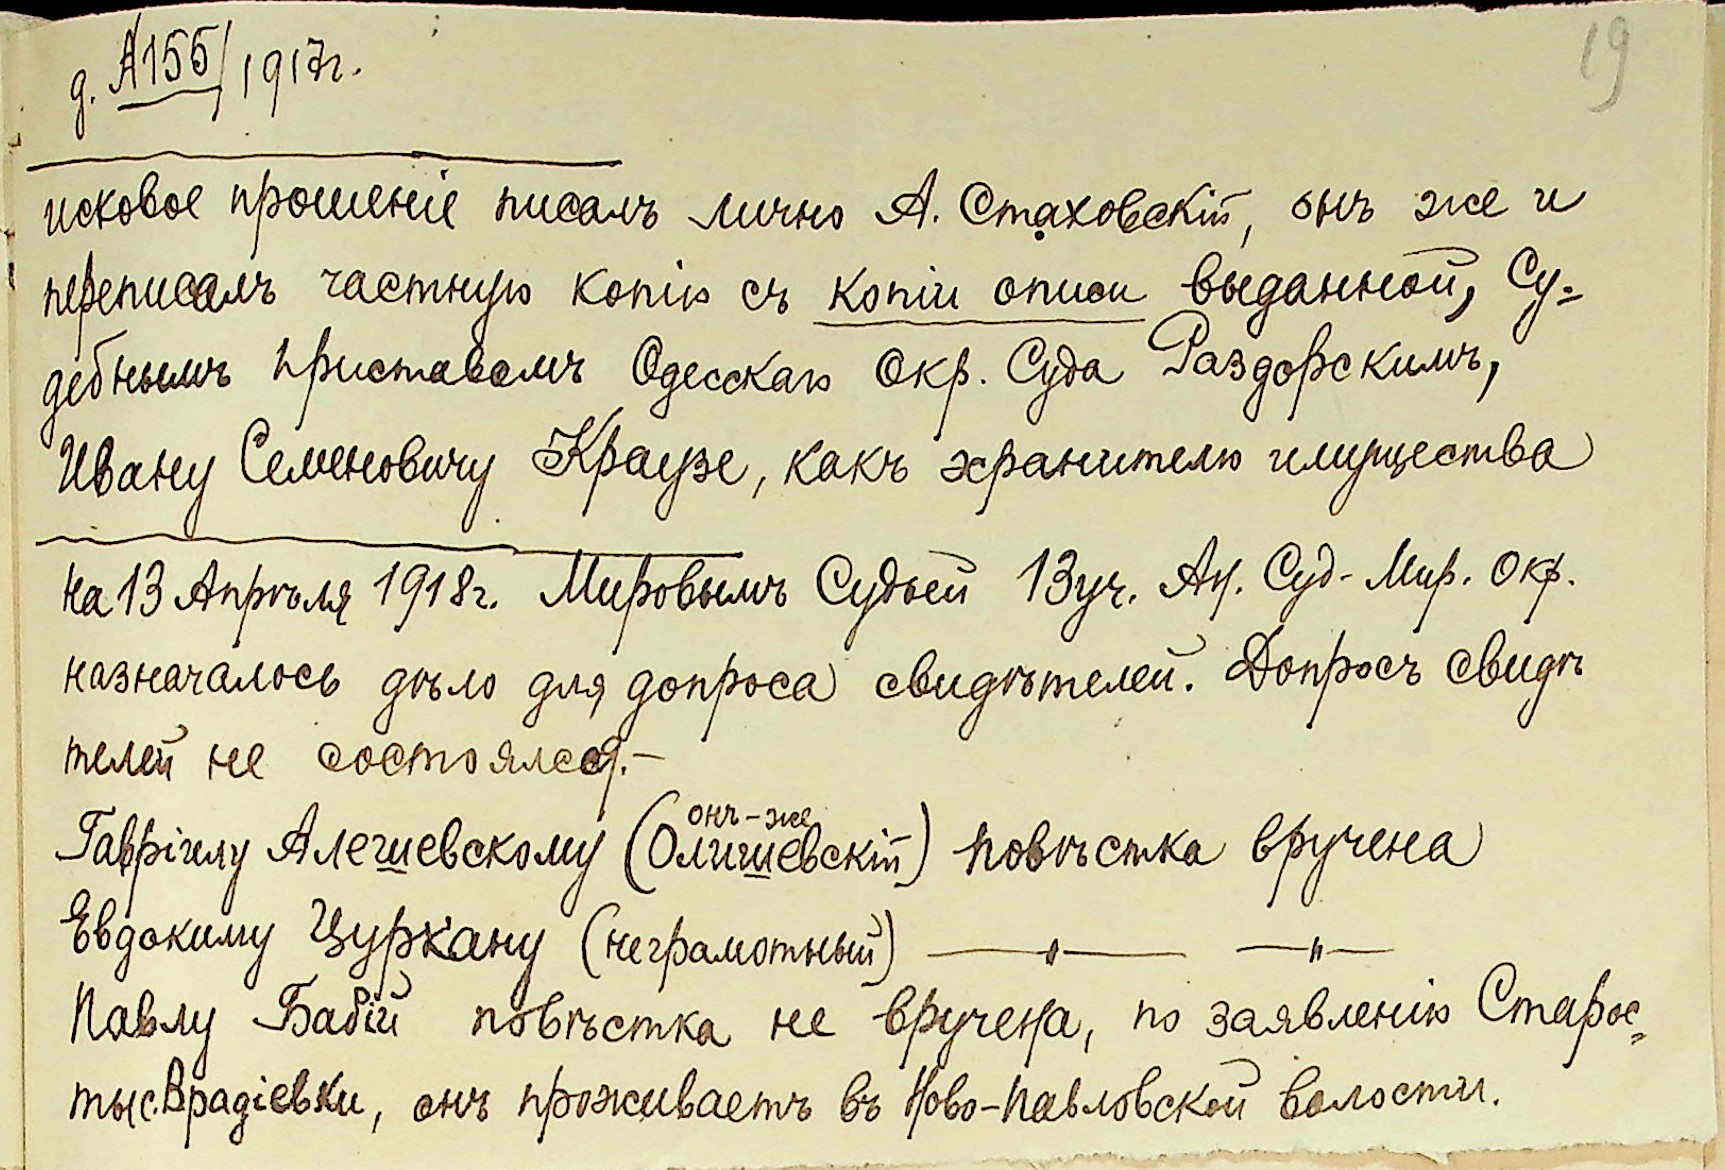 19
д. А155/1917г.
исковое прошеніе писалъ лично А. Стаховскій, онъ же и
переписалъ частную копію съ копіи описи выданной, Су-
дебнымъ приставомъ Одесскаго Окр. Суда Раздорскимъ,
Ивану Семеновичу Краузе, какъ хранителю имущества
На 13 Апрѣля 1918г. Мировымъ Судьей 13 уч. Ан. Суд-Мир. Окр.
назначалось дѣло для допроса свидѣтелей. Допросъ свидѣ
телей не состоялся.-
онъ-же
Гавріилу Алешевскому (Олишевскій) повѣстка вручена
Евдокиму Цуркану (неграмотный) —"— —"—
Павлу Бабій повѣстка не вручена, по заявленію Старос-
ты с. Врадіевки, онъ проживаетъ въ Ново-Павловской волости.